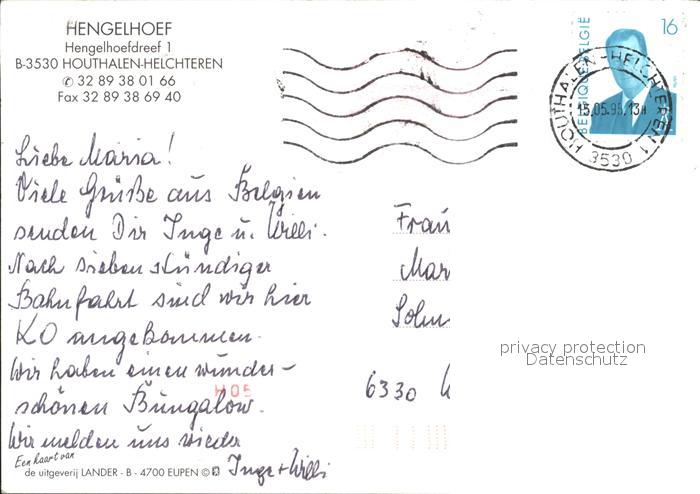 HENGELHOEF
Hengelhoefdreef 1
B-3530 HOUTHALEN-HELCHTEREN
✆ 32 89 38 01 66
Fax 32 89 38 69 40
BELGIQUE-BELGIË
16
HOUTHALEN-HELCHTEREN 1
15.05.95.13H
3530
Liebe Maria!
Viele Grüße aus Belgien
senden Dir Inge u. Willi.
Nach siebenstündiger
Bahnfahrt sind wir hier
KO angekommen.
Wir haben einen wunder-
schönen Bungalow.
Wir melden uns wieder
Inge + Willi
Frau
Mar
6330
H05
privacy protection
Datenschutz
Een kaart van
de uitgeverij LANDER - B - 4700 EUPEN ©